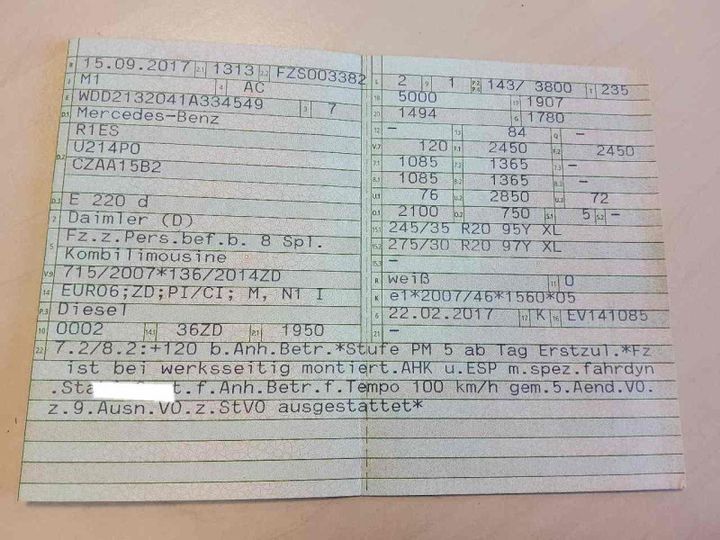 B 15.09.2017 2.1 1313 2.2 FZS003382
J M1 4 AC
E WDD2132041A334549 3 7
D.1 Mercedes-Benz
R1ES
D.2 U214P0
CZAA15B2
D.3 E 220 d
2 Daimler (D)
5 Fz.z.Pers.bef.b. 8 Spl.
Kombilimousine
V.9 715/2007*136/2014ZD
14 EURO6;ZD;PI/CI; M, N1 I
P.3 Diesel
10 0002 14.1 36ZD P.1 1950
L 2 9 1 P.2 P.4 143/ 3800 T 235
18 5000 19 1907
20 1494 G 1780
12 – 13 84 Q –
V.7 120 F.1 2450 F.2 2450
7.1 1085 7.2 1365 7.3 –
8.1 1085 8.2 1365 8.3 –
U.1 76 U.2 2850 U.3 72
O.1 2100 O.2 750 S.1 5 S.2 –
15.1 245/35 R20 95Y XL
15.2 275/30 R20 97Y XL
15.3 –
R weiß 11 0
K e1*2007/46*1560*05
6 22.02.2017 17 K 16 EV141085
21 –
22 7.2/8.2:+120 b.Anh.Betr.*Stufe PM 5 ab Tag Erstzul.*Fz
ist bei werksseitig montiert.AHK u.ESP m.spez.fahrdyn
.Sta t.f.Anh.Betr.f.Tempo 100 km/h gem.5.Aend.VO.
z.9.Ausn.VO.z.StVO ausgestattet*